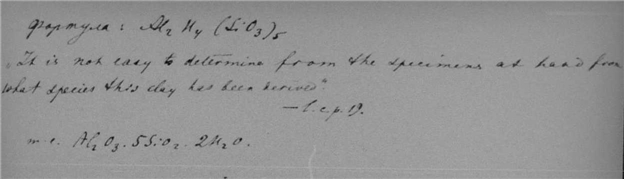 формула: Al₂ H₄ (SiO₃)₅
„It is not easy to determine from the specimens at hand from
what species this clay has been derived"
— l. c. p. 19.
т-е. Al₂O₃. 5SiO₂. 2H₂O.